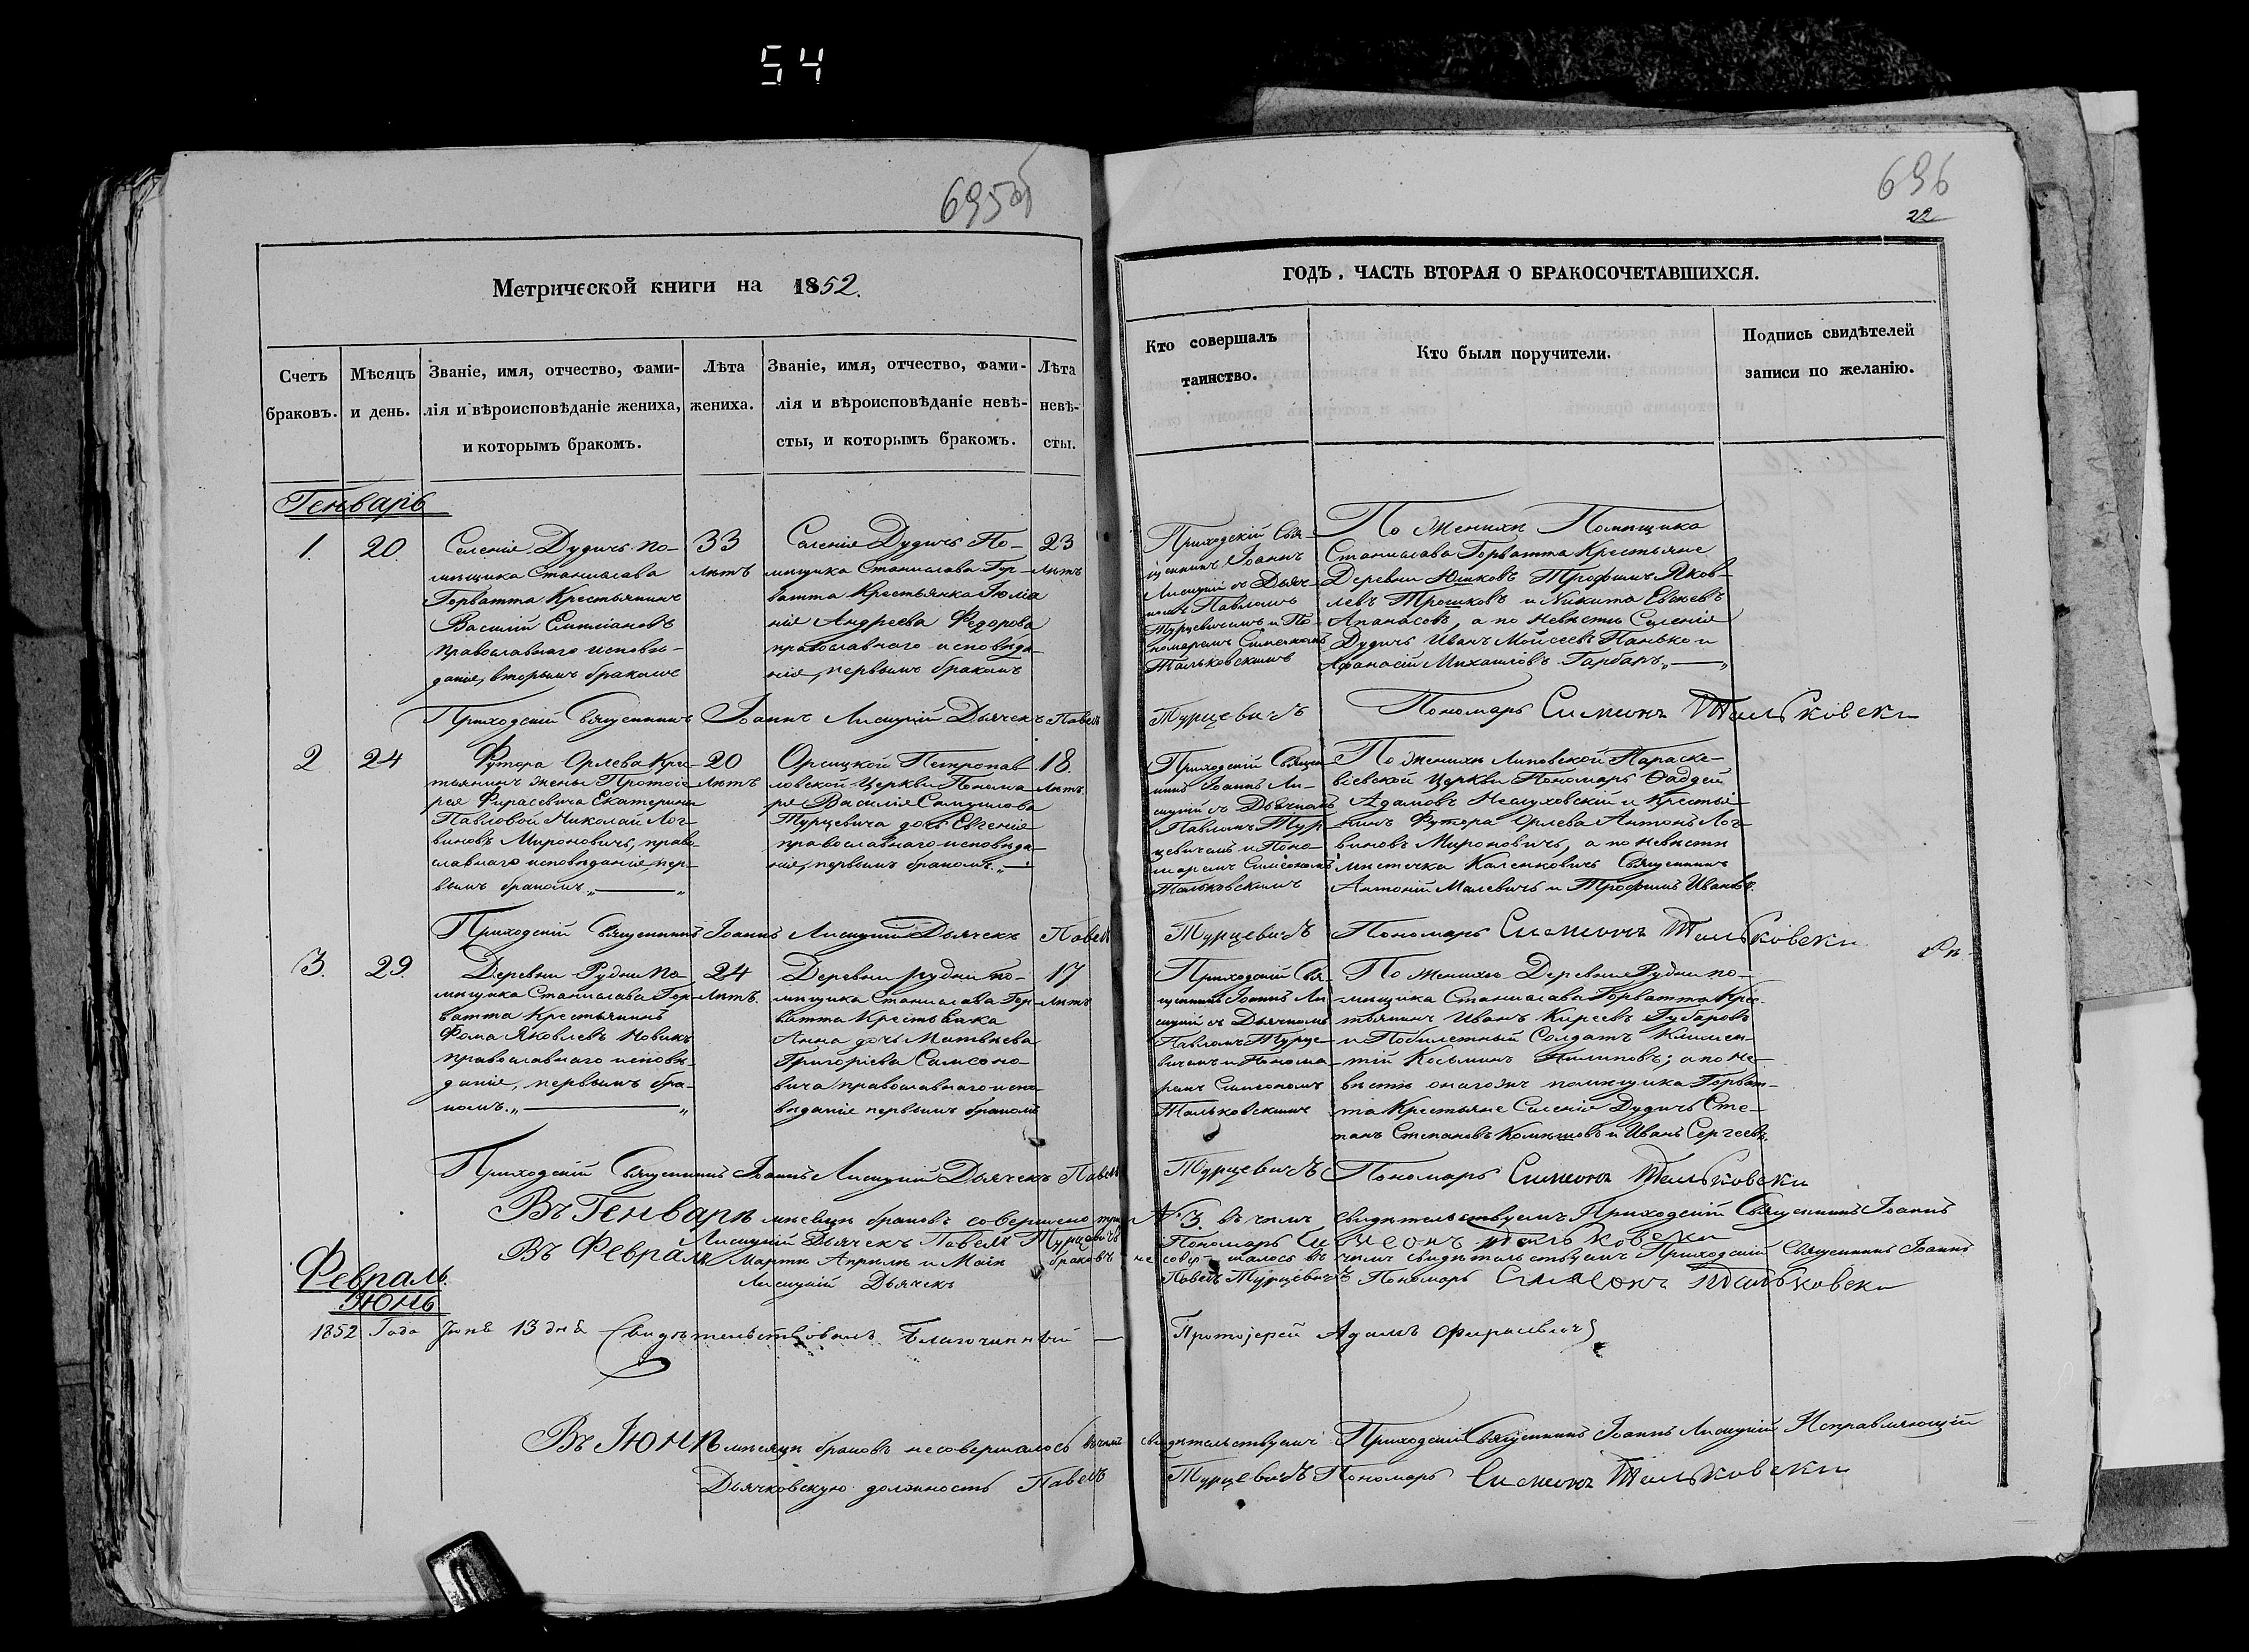 54
695об
Метрической книги на 1852.
Счетъ браковъ.
Мѣсяцъ и день.
Званіе, имя, отчество, фами-
лія и вѣроисповѣданіе жениха,
и которымъ бракомъ.
Лѣта жениха.
Званіе, имя, отчество, фами-
лія и вѣроисповѣданіе невѣ-
сты, и которымъ бракомъ.
Лѣта невѣ-
сты.
Генварь
1. 20.
Селенія Дудичь по-
мѣщика Станислава
Горватта Крестьянинъ
Василій Емиліановъ
православнаго исповѣ-
данія, вторымъ бракомъ
33
лѣтъ
Селенія Дудичь По-
мѣщика Станислава Гор-
ватта Крестьянка Іюліа
нія Андреева Федорова
православнаго исповѣда-
нія, первымъ бракомъ
23
лѣтъ
Приходскій Священникъ Іоаннъ Лисицкій Дьячекъ Павелъ
2 24
Футора Орлева Кре-
тьянинъ жены Протоіе
рея Фирасевича Екатерины
Павловой Николай Лог-
виновъ Мироновичь, право-
славнаго исповѣданія, пер-
вымъ бракомъ „ — „
20
лѣтъ
Петропав-
ловской Церкви Понома-
ря Василія Самуилова
Турцевича дочь Евгенія
православнаго исповѣда-
нія, первымъ бракомъ. „ —
18.
лѣтъ
Приходскій Священникъ Іоаннъ Лисицкій Дьячекъ Павелъ
3. 29.
Деревни Рудни по
мѣщика Станислава Гор-
ватта Крестьянинъ
Фома Яковлевъ Новикъ
православнаго исповѣ-
данія, первымъ бра-
комъ. „ — „
24
лѣтъ.
Деревни Рудни по-
мѣщика Станислава Гор-
ватта Крестьянка
Анна дочь Матвѣева
Григоріева Самсоно-
вича православнаго испо-
вѣданія первымъ бракомъ
17
лѣтъ
Приходскій Священникъ Іоаннъ Лисицкій Дьячекъ Павелъ
Въ Генварѣ мѣсяцѣ браковъ совершено три
Лисицкій Дьячекъ Павелъ Турцевичъ
Въ Февралѣ Мартѣ Апрѣлѣ и Маіи браковъ
Лисицкій Дьячекъ
Февраль.
Іюнь
1852 Года Іюня 13 дня Свидѣтельствовалъ Благочинный —
Въ Іюнѣ мѣсяцѣ браковъ несовершалось въ чемъ
Дьячковскую должность Павелъ
696
22
ГОДЪ, ЧАСТЬ ВТОРАЯ О БРАКОСОЧЕТАВШИХСЯ.
Кто совершалъ
таинство.
Кто были поручители.
Подпись свидѣтелей
записи по желанію.
Приходскій Свя-
щенникъ Іоаннъ
Лисицкій съ Дьяч-
комъ Павломъ
Турцевичемъ и По-
номаремъ Симеономъ
Тальковскимъ
По Женихѣ Помѣщика
Станислава Горватта Крестьяне
Деревни Юшковъ Трофимъ Яков-
левъ Трошковъ и Никита Евсѣевъ
Апанасовъ, а по Невѣстѣ Селенія
Дудичь Иванъ Мойсеевъ Панько и
Афанасій Михаиловъ Гарбаръ „ — „
Турцевичъ Пономарь Симеонъ Тальковски
Приходскій Священ-
никъ Іоаннъ Ли-
сицкій съ Дьячкомъ
Павломъ Тур-
цевичемъ и Поно-
маремъ Симеономъ
Тальковскимъ
По Женихѣ Липовской Параске-
віевской Церкви Пономарь Фаддей
Адамовъ и Крестья-
нинъ Футора Орлева Антонъ Лог-
виновъ Мироновичь, а по Невѣстѣ
мѣстечка Каленковичь Священникъ
Антоній Малевичь и Трофимъ Ивановъ.
Турцевичъ Пономарь Симеонъ Тальковски
Приходскій Свя-
щенникъ Іоаннъ Ли-
сицкій съ Дьячкомъ
Павломъ Турце-
вичемъ и Понома-
ремъ Симеономъ
Тальковскимъ
По Женихѣ Деревни Рудни по-
мѣщика Станислава Горватта Крес-
тьянинъ Иванъ Киреевъ Губаровъ
и Побилетный Солдатъ Климен-
тій Козьминъ Филиповъ; а по Не-
вѣстѣ онагожъ помѣщика Горват-
та Крестьяне Селенія Дудичь Сте-
панъ Степановъ и Иванъ Сергеевъ.
Турцевичъ Пономарь Симеонъ Тальковски
№ 3. въ чемъ свидѣтельствуемъ Приходскій Священникъ Іоаннъ
Пономарь Симеонъ Тальковски
не совершалось въ чемъ свидѣтельствуемъ Приходскій Священникъ Іоаннъ
Павелъ Турцевичъ Пономарь Симеонъ Тальковски
Протоіерей Адамъ Фирасевичъ
свидѣтельствуемъ Приходскій Священникъ Іоаннъ Лисицкій Исправляющій
Турцевичъ Пономарь Симеонъ Тальковски